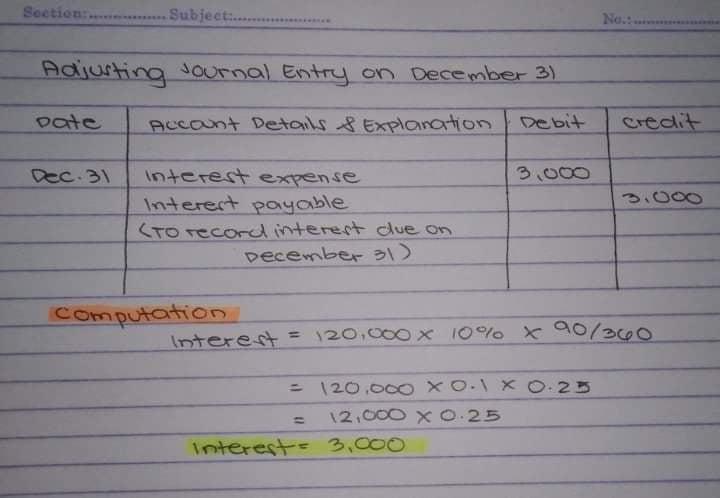 Section:................ Subject:......................... No.:......................
Adjusting Journal Entry on December 31
Date Account Details & Explanation Debit Credit
Dec. 31 Interest expense 3,000
Interest payable 3,000
(To record interest due on
December 31)
Computation
Interest = 120,000 x 10% x 90/360
= 120,000 x 0.1 x 0.25
= 12,000 x 0.25
Interest = 3,000